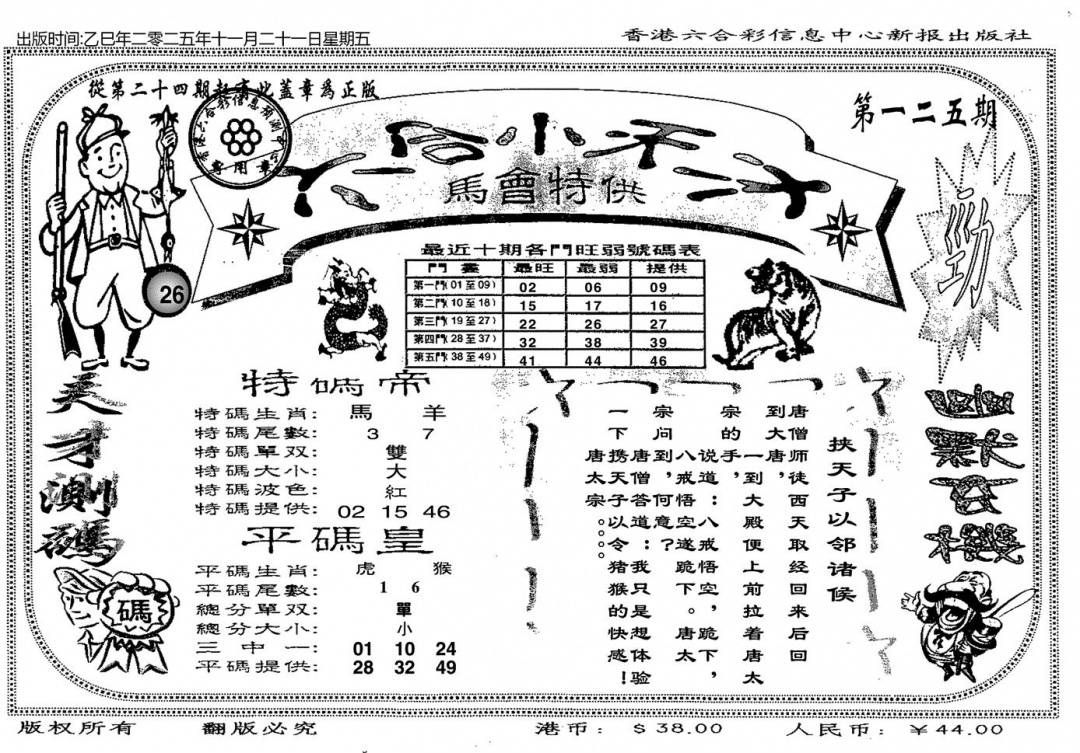 出版时间:乙巳年二零二五年十一月二十一日星期五
香港六合彩信息中心新报出版社
從第二十四期起有此蓋章爲正版
第一二五期
六合小禾二水
馬會特供
勁
26
最近十期各門旺弱號碼表
門 最旺 最弱 提供
第一門(01至09) 02 06 09
第二門(10至18) 15 17 16
第三門(19至27) 22 26 27
第四門(28至37) 32 38 39
第五門(38至49) 41 44 46
天才測碼
碼
特碼帝
特碼生肖: 馬 羊
特碼尾數: 3 7
特碼單双: 雙
特碼大小: 大
特碼波色: 紅
特碼提供: 02 15 46
平碼皇
平碼生肖: 虎 猴
平碼尾數: 1 6
總分單双: 單
總分大小: 小
三中一: 01 10 24
平碼提供: 28 32 49
挟天子以邻诸候
唐僧师徒西天取经回来后回
到大唐,一到大殿便上前拉着唐太
宗的手,说道:八戒悟空,跪下,
八戒悟空遂跪下。唐太
宗问到,何意?
唐僧答道:我只是想体验
一下携天子以令猪猴的快感!
唐太宗。。。
版权所有
翻版必究
港币: $38.00
人民币: ¥44.00